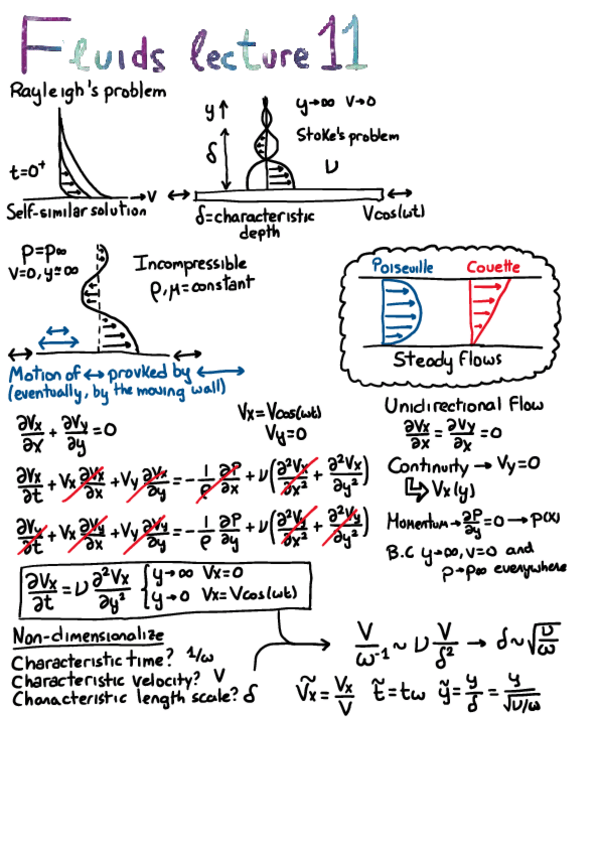 Fluids lecture 11
Rayleigh's problem
t=0⁺
V
Self-similar solution
y↑
δ
y→∞ V→0
Stoke's problem
ν
δ=characteristic
depth
Vcos(ωt)
P=P∞
V=0, y=∞
Incompressible
ρ,μ=constant
Motion of ↔ provked by ↔
(eventually, by the moving wall)
Poiseuille Couette
Steady flows
∂Vx/∂x + ∂Vy/∂y = 0
Vx=Vcos(ωt)
Vy=0
∂Vx/∂t + Vx ∂Vx/∂x + Vy ∂Vx/∂y = -1/ρ ∂P/∂x + ν(∂²Vx/∂x² + ∂²Vx/∂y²)
∂Vy/∂t + Vx ∂Vy/∂x + Vy ∂Vy/∂y = -1/ρ ∂P/∂y + ν(∂²Vy/∂x² + ∂²Vy/∂y²)
Unidirectional Flow
∂Vx/∂x = ∂Vy/∂x = 0
Continuity → Vy=0
↳ Vx(y)
Momentum → ∂P/∂y = 0 → P(x)
B.C y→∞, v=0 and
P→P∞ everywhere
∂Vx/∂t = ν ∂²Vx/∂y² { y→∞ Vx=0
y→0 Vx=Vcos(ωt)
Non-dimensionalize
Characteristic time? 1/ω
Characteristic velocity? V
Characteristic length scale? δ
V/ω⁻¹ ~ ν V/δ² → δ~√(ν/ω)
Ṽx = Vx/V t̃=tω ỹ = y/δ = y/√(ν/ω)